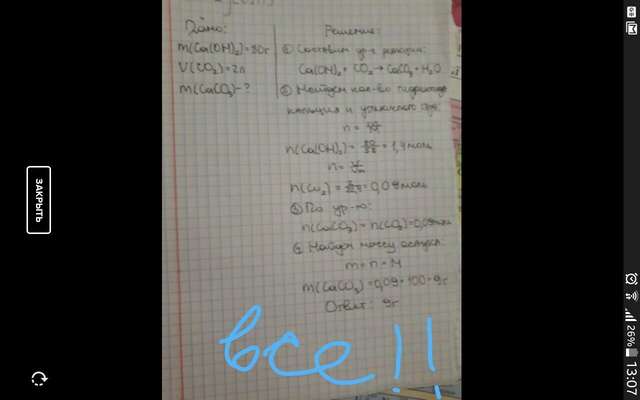 Дано:
m(Ca(OH)₂)=80г
V(CO₂)=2л
m(CaCO₃)-?
Решение:
① Составим ур-е реакции:
Ca(OH)₂ + CO₂ → CaCO₃ + H₂O
② Найдем кол-во гидроксида
кальция и углекислого газа:
n =
n(Ca(OH)₂) = = 1,4 моль
n =
n(CO₂) = = 0,09 моль
③ По ур-ю:
n(CaCO₃) = n(CO₂) = 0,09 моль
④ Найдем массу осадка:
m = n · M
m(CaCO₃) = 0,09 · 100 = 9г
Ответ: 9г
все!!
ЗАКРЫТЬ
26%
13:07